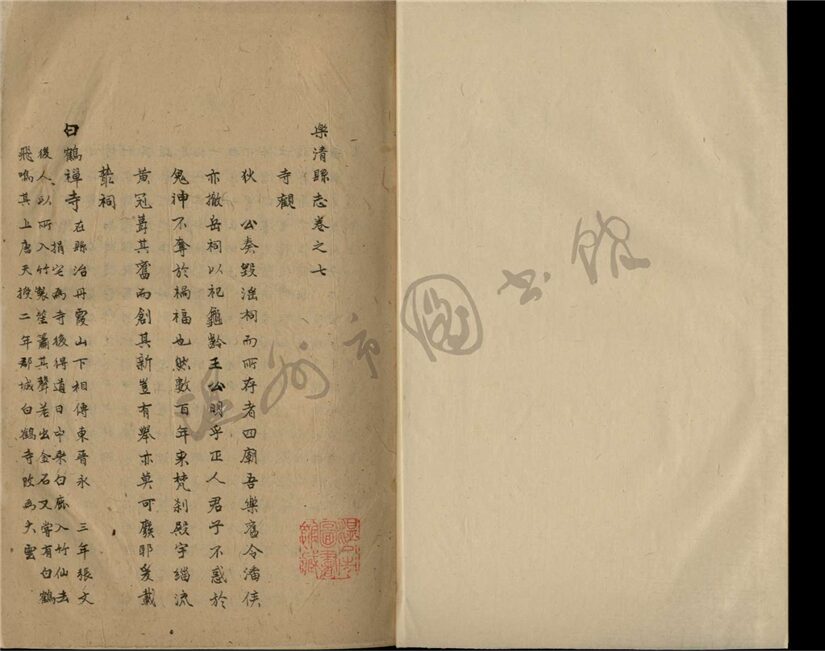 樂清縣志卷之七
寺觀
狄 公奏毀滛祠而所存者四廟吾樂舊令潘侯
亦撤岳祠以祀龜齡王公明乎正人君子不惑於
鬼神不奪於禍福也然數百年來梵刹殿宇緇流
黃冠葺其舊而創其新豈有舉亦莫可廢耶爰載
叢祠
白鶴禅寺在縣治丹霞山下相傳東晋永 三年張文
捐宅為寺後得道日中乘白鹿入竹仙去
後人以所入竹製笙簫其聲若出金石又嘗有白鶴
飛鳴其上唐天授二年郡城白鶴寺改為大雲
温州市圖书館